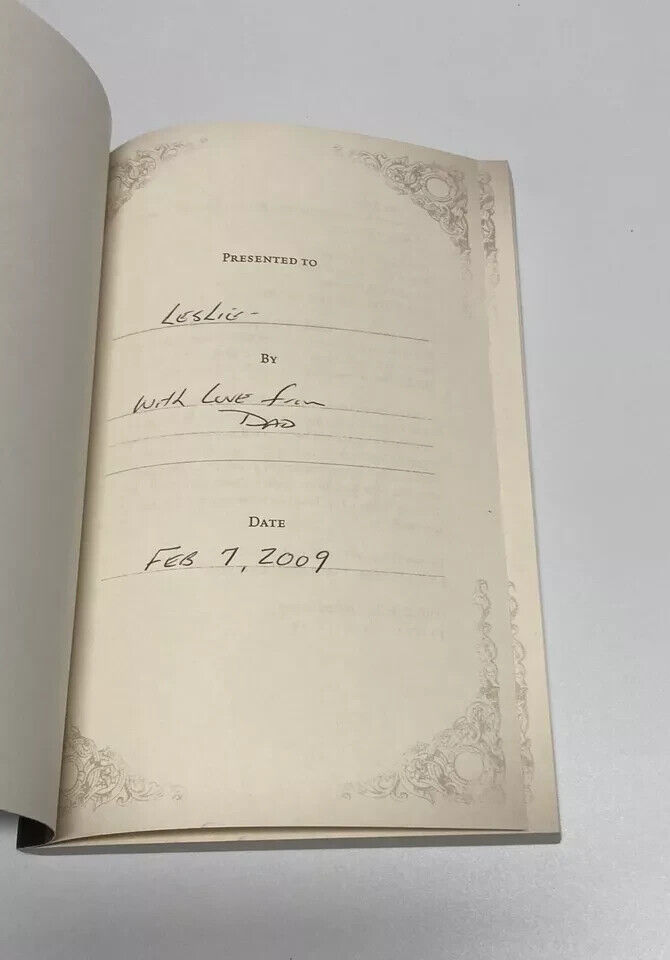 PRESENTED TO
LESLIE-
BY
With Love from
DAD
DATE
FEB 7, 2009